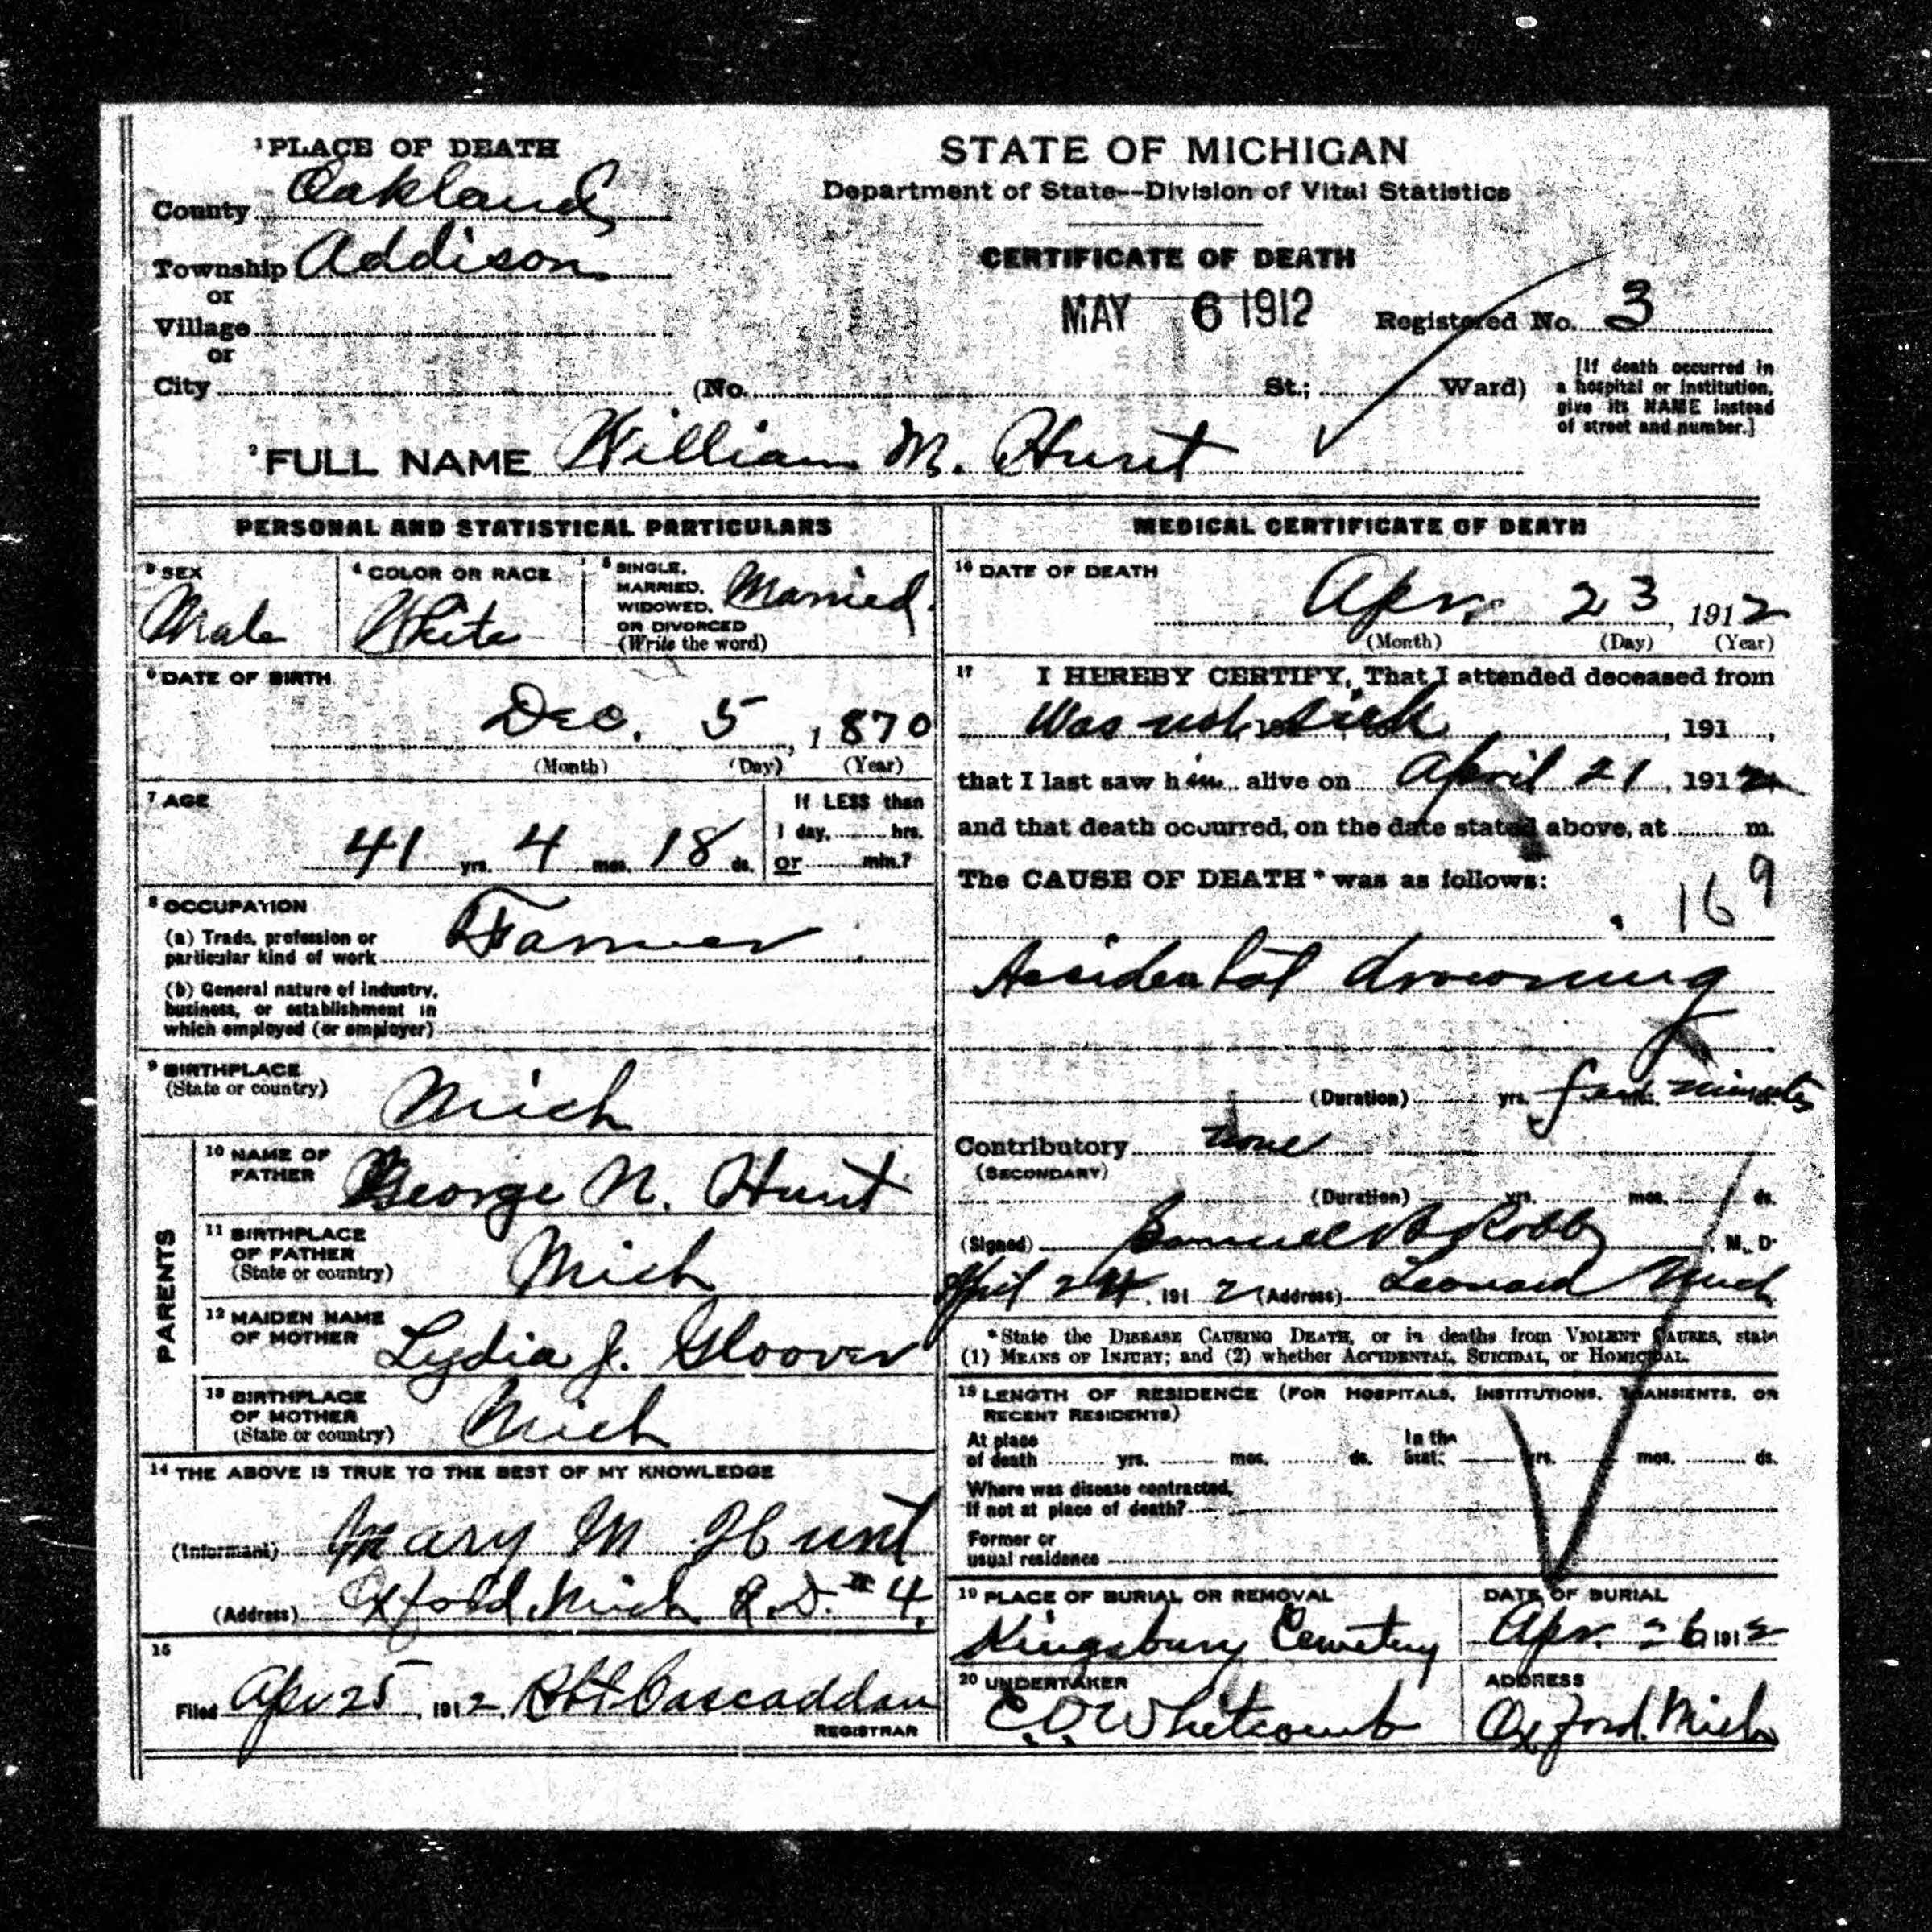 1 PLACE OF DEATH
County Oakland
Township Addison
or
Village
or
City (No. St.; Ward)
STATE OF MICHIGAN
Department of State--Division of Vital Statistics
CERTIFICATE OF DEATH
MAY 6 1912 Registered No. 3
[If death occurred in
a hospital or institution,
give its NAME instead
of street and number.]
2 FULL NAME William M. Hunt
PERSONAL AND STATISTICAL PARTICULARS
3 SEX
Male
4 COLOR OR RACE
White
5 SINGLE,
MARRIED,
WIDOWED,
OR DIVORCED
(Write the word)
Married.
6 DATE OF BIRTH
Dec. 5, 1870
(Month) (Day) (Year)
7 AGE
41 yrs. 4 mos. 18 ds.
If LESS than
1 day, hrs.
or min.?
8 OCCUPATION
(a) Trade, profession or
particular kind of work Farmer
(b) General nature of industry,
business, or establishment in
which employed (or employer)
9 BIRTHPLACE
(State or country) Mich
PARENTS
10 NAME OF
FATHER George N. Hunt
11 BIRTHPLACE
OF FATHER
(State or country) Mich
12 MAIDEN NAME
OF MOTHER Lydia J. Gloover
13 BIRTHPLACE
OF MOTHER
(State or country) Mich
14 THE ABOVE IS TRUE TO THE BEST OF MY KNOWLEDGE
(Informant) Mary M Hunt
(Address) Oxford, Mich R.D. # 4.
15
Filed Apr 25, 1912, Robt Cascaddan
REGISTRAR
MEDICAL CERTIFICATE OF DEATH
16 DATE OF DEATH
Apr. 23, 1912
(Month) (Day) (Year)
17 I HEREBY CERTIFY, That I attended deceased from
Was not sick, 191 ,
that I last saw him alive on April 21, 1912
and that death occurred, on the date stated above, at m.
The CAUSE OF DEATH* was as follows:
169
Assidental drowning
(Duration) yrs. few mos. minutes ds.
Contributory none
(SECONDARY)
(Duration) yrs. mos. ds.
(Signed) Samuel A Robb, M. D.
April 24, 1912 (Address) Leonard Mich
*State the DISEASE CAUSING DEATH, or in deaths from VIOLENT CAUSES, state
(1) MEANS OF INJURY; and (2) whether ACCIDENTAL, SUICIDAL, or HOMICIDAL.
18 LENGTH OF RESIDENCE (FOR HOSPITALS, INSTITUTIONS, TRANSIENTS, OR
RECENT RESIDENTS)
At place
of death yrs. mos. ds.
In the
State yrs. mos. ds.
Where was disease contracted,
If not at place of death?
Former or
usual residence
19 PLACE OF BURIAL OR REMOVAL
Kingsbury Cemetery
DATE OF BURIAL
Apr. 26 1912
20 UNDERTAKER
C.O. Whitcomb
ADDRESS
Oxford. Mich